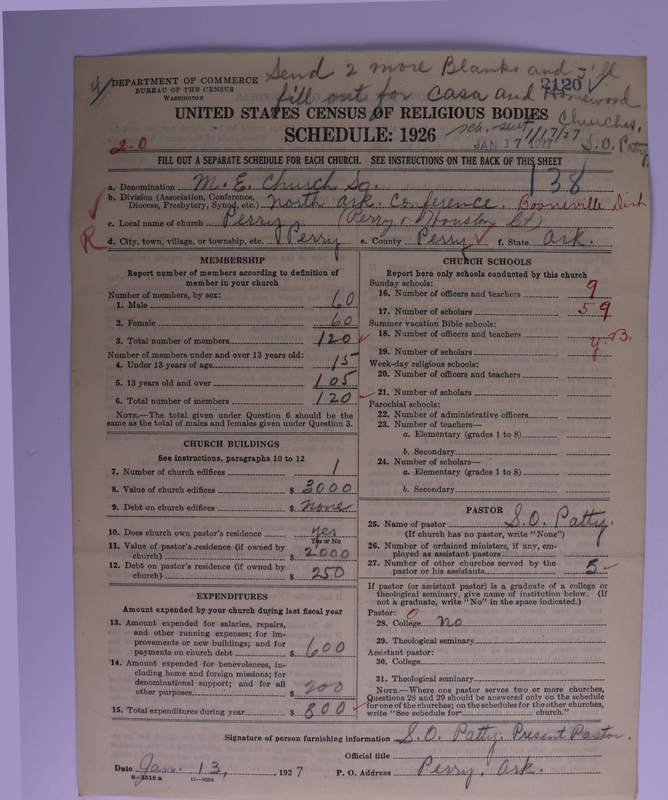 4/ Send 2 more Blanks and I'll
DEPARTMENT OF COMMERCE
BUREAU OF THE CENSUS
WASHINGTON
2120
fill out for Casa and Homewood
Churches,
S. O. Patty.
UNITED STATES CENSUS OF RELIGIOUS BODIES
SCHEDULE: 1926
sch. sent 1/17/27
JAN 17 1927
2-0
FILL OUT A SEPARATE SCHEDULE FOR EACH CHURCH. SEE INSTRUCTIONS ON THE BACK OF THIS SHEET
138
a. Denomination M. E. Church So.
b. Division (Association, Conference, Diocese, Presbytery, Synod, etc.) North Ark. Conference. Booneville Dist
c. Local name of church Perry (Perry & Houston Ct)
R
d. City, town, village, or township, etc. Perry e. County Perry f. State Ark.
MEMBERSHIP
Report number of members according to definition of
member in your church
Number of members, by sex:
1. Male 60
2. Female 60
3. Total number of members 120
Number of members under and over 13 years old:
4. Under 13 years of age 15
5. 13 years old and over 105
6. Total number of members 120
NOTE.—The total given under Question 6 should be the
same as the total of males and females given under Question 3.
CHURCH BUILDINGS
See instructions, paragraphs 10 to 12
7. Number of church edifices 1
8. Value of church edifices $ 3000
9. Debt on church edifices $ None
10. Does church own pastor's residence yes
Yes or No
11. Value of pastor's residence (if owned by
church) $ 2000
12. Debt on pastor's residence (if owned by
church) $ 250
EXPENDITURES
Amount expended by your church during last fiscal year
13. Amount expended for salaries, repairs,
and other running expenses; for im-
provements or new buildings; and for
payments on church debt $ 600
14. Amount expended for benevolences, in-
cluding home and foreign missions; for
denominational support; and for all
other purposes $ 200
15. Total expenditures during year $ 800
CHURCH SCHOOLS
Report here only schools conducted by this church
Sunday schools:
16. Number of officers and teachers 9
17. Number of scholars 59
Summer vacation Bible schools:
18. Number of officers and teachers
19. Number of scholars
Week-day religious schools:
20. Number of officers and teachers
21. Number of scholars
Parochial schools:
22. Number of administrative officers
23. Number of teachers—
a. Elementary (grades 1 to 8)
b. Secondary
24. Number of scholars—
a. Elementary (grades 1 to 8)
b. Secondary
PASTOR
25. Name of pastor S. O. Patty.
(If church has no pastor, write "None")
26. Number of ordained ministers, if any, em-
ployed as assistant pastors
27. Number of other churches served by the
pastor or his assistants 5
If pastor (or assistant pastor) is a graduate of a college or
theological seminary, give name of institution below. (If
not a graduate, write "No" in the space indicated.)
Pastor: 0
28. College No
29. Theological seminary
Assistant pastor:
30. College
31. Theological seminary
NOTE.—Where one pastor serves two or more churches,
Questions 28 and 29 should be answered only on the schedule
for one of the churches; on the schedules for the other churches,
write "See schedule for church."
Signature of person furnishing information S. O. Patty. Present Pastor.
Official title
Date Jan. 13, , 1927 P. O. Address Perry, Ark.
8—5518a 11—9524